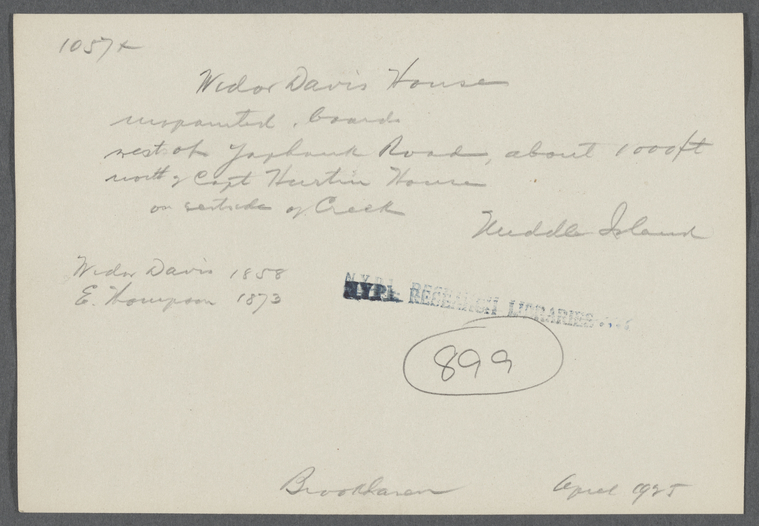 1057+
Widow Davis House
unpainted, boards
west of Yaphank Road, about 1000ft
north of Capt Hurtin House
on eastside of Creek
Middle Island
Widow Davis 1858
E. Thompson 1873
NYPL RESEARCH LIBRARIES
899
Brookhaven
April 1925